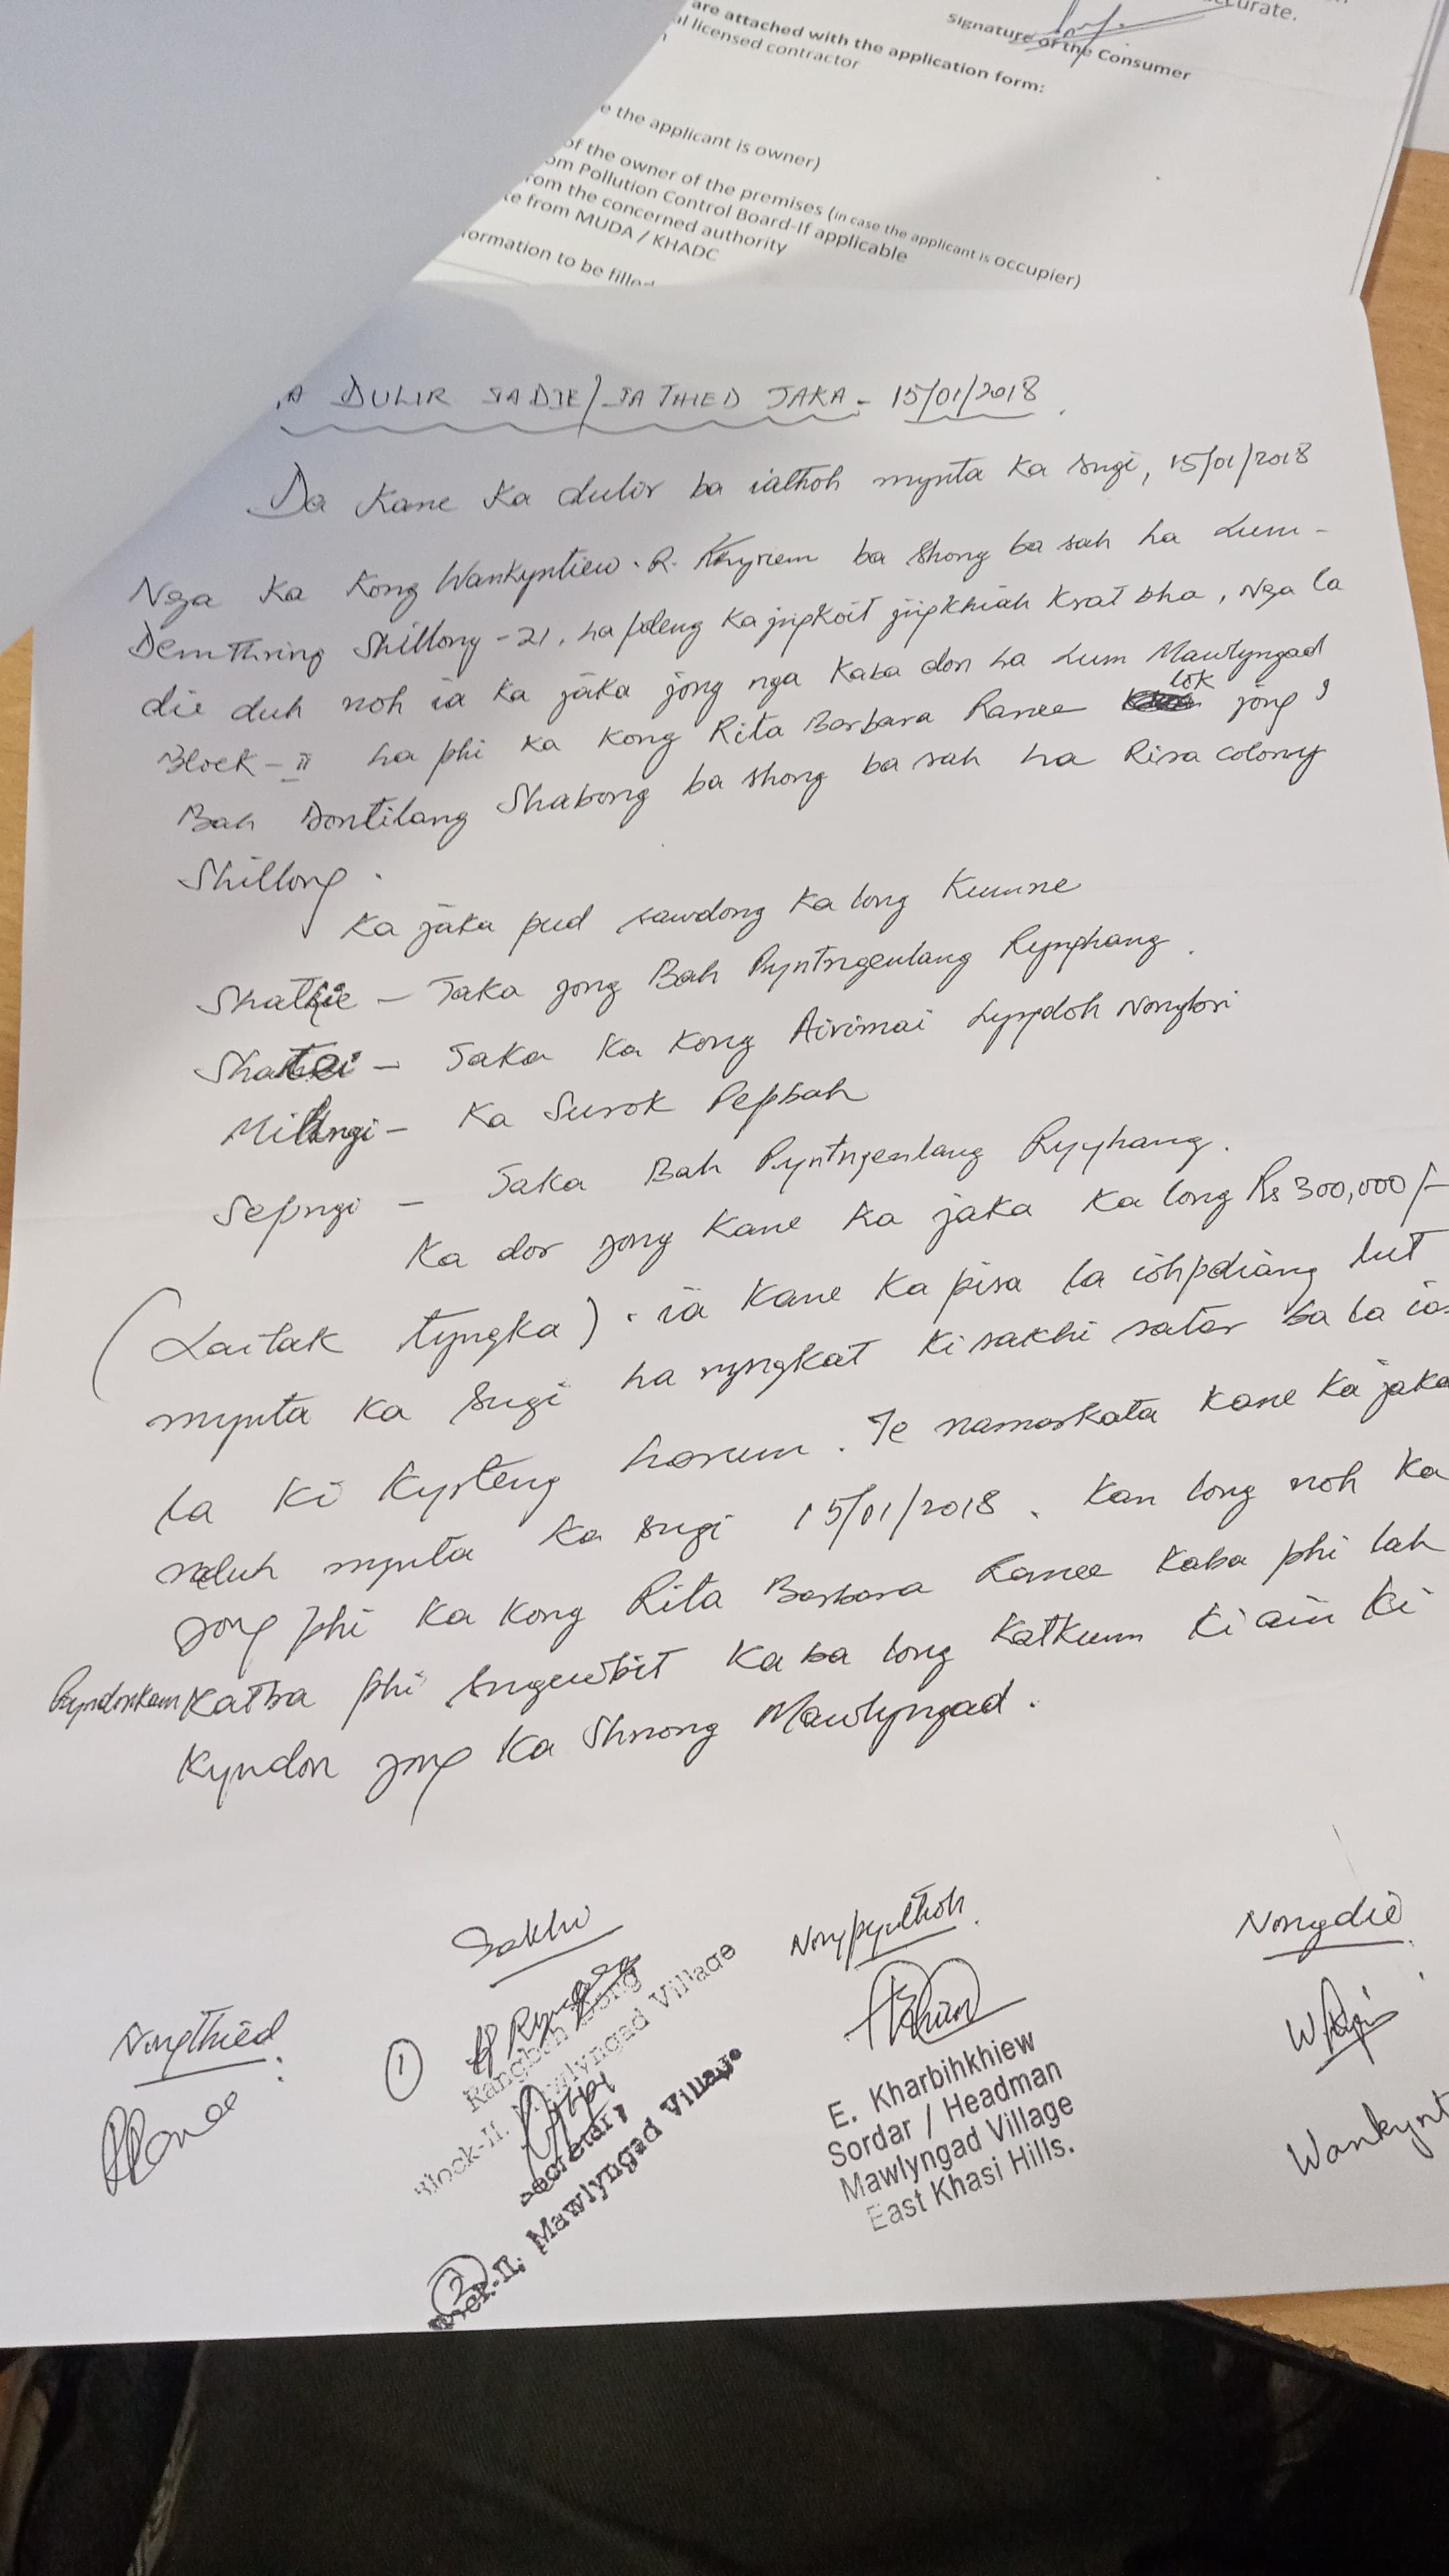 ccurate.
Signature of the Consumer
are attached with the application form:
al licensed contractor
n
e the applicant is owner)
of the owner of the premises (in case the applicant is occupier)
om Pollution Control Board-If applicable
rom the concerned authority
te from MUDA / KHADC
formation to be filled
A DULIR IADIE/IATHIED JAKA - 15/01/2018
Da Kane Ka dulir ba ialthoh mynta Ka sngi, 15/01/2018
Nga Ka Kong Wankyntiew. R. Khyriem ba shong ba sah ha Lum-
Demthring Shillong-21, ha pdeng Ka jingkoit jingkhiah Krat bha, Nga la
die duh noh ia Ka jaka jong nga Kaba don ha Lum Mawlyngad
Block-II ha phi Ka Kong Rita Barbara Ranee lok jong
Bah Dontilang Shabong ba shong ba sah ha Risa colony
Shillong.
Ka jaka pud sawdong Ka long Kumne
Shathie - Jaka jong Bah Pyntngenlang Rynghang.
Shatei - Jaka Ka Kong Airimai Lyngdoh Nonglori
Mihngi - Ka Surok Pepbah
Sepngi - Jaka Bah Pyntngenlang Rynghang.
Ka dor jong Kane Ka jaka Ka long Rs 300,000/-
(Lailak tyngka). ia Kane Ka pisa la iohpdiang lut
mynta Ka sngi ha ryngkat Ki sakhi satar ba la ia
la Ki Kyrteng harum. Te namarkata Kane Ka jaka
naduh mynta Ka sngi 15/01/2018. Kan long noh Ka
jong phi Ka Kong Rita Barbara Ranee Kaba phi lah
Pyndonkam Katba phi sngewbit Kaba long Katkum Ki ain Ki
Kyndon jong Ka Shnong Mawlyngad.
Nongthied
Ranee
Sakhi
1
Rangbah Dong
Block-II, Mawlyngad Village
Secretary
2
Block-II, Mawlyngad Village
Nongpynthoh
E. Kharbihkhiew
Sordar / Headman
Mawlyngad Village
East Khasi Hills.
Nongdie
Wankynt